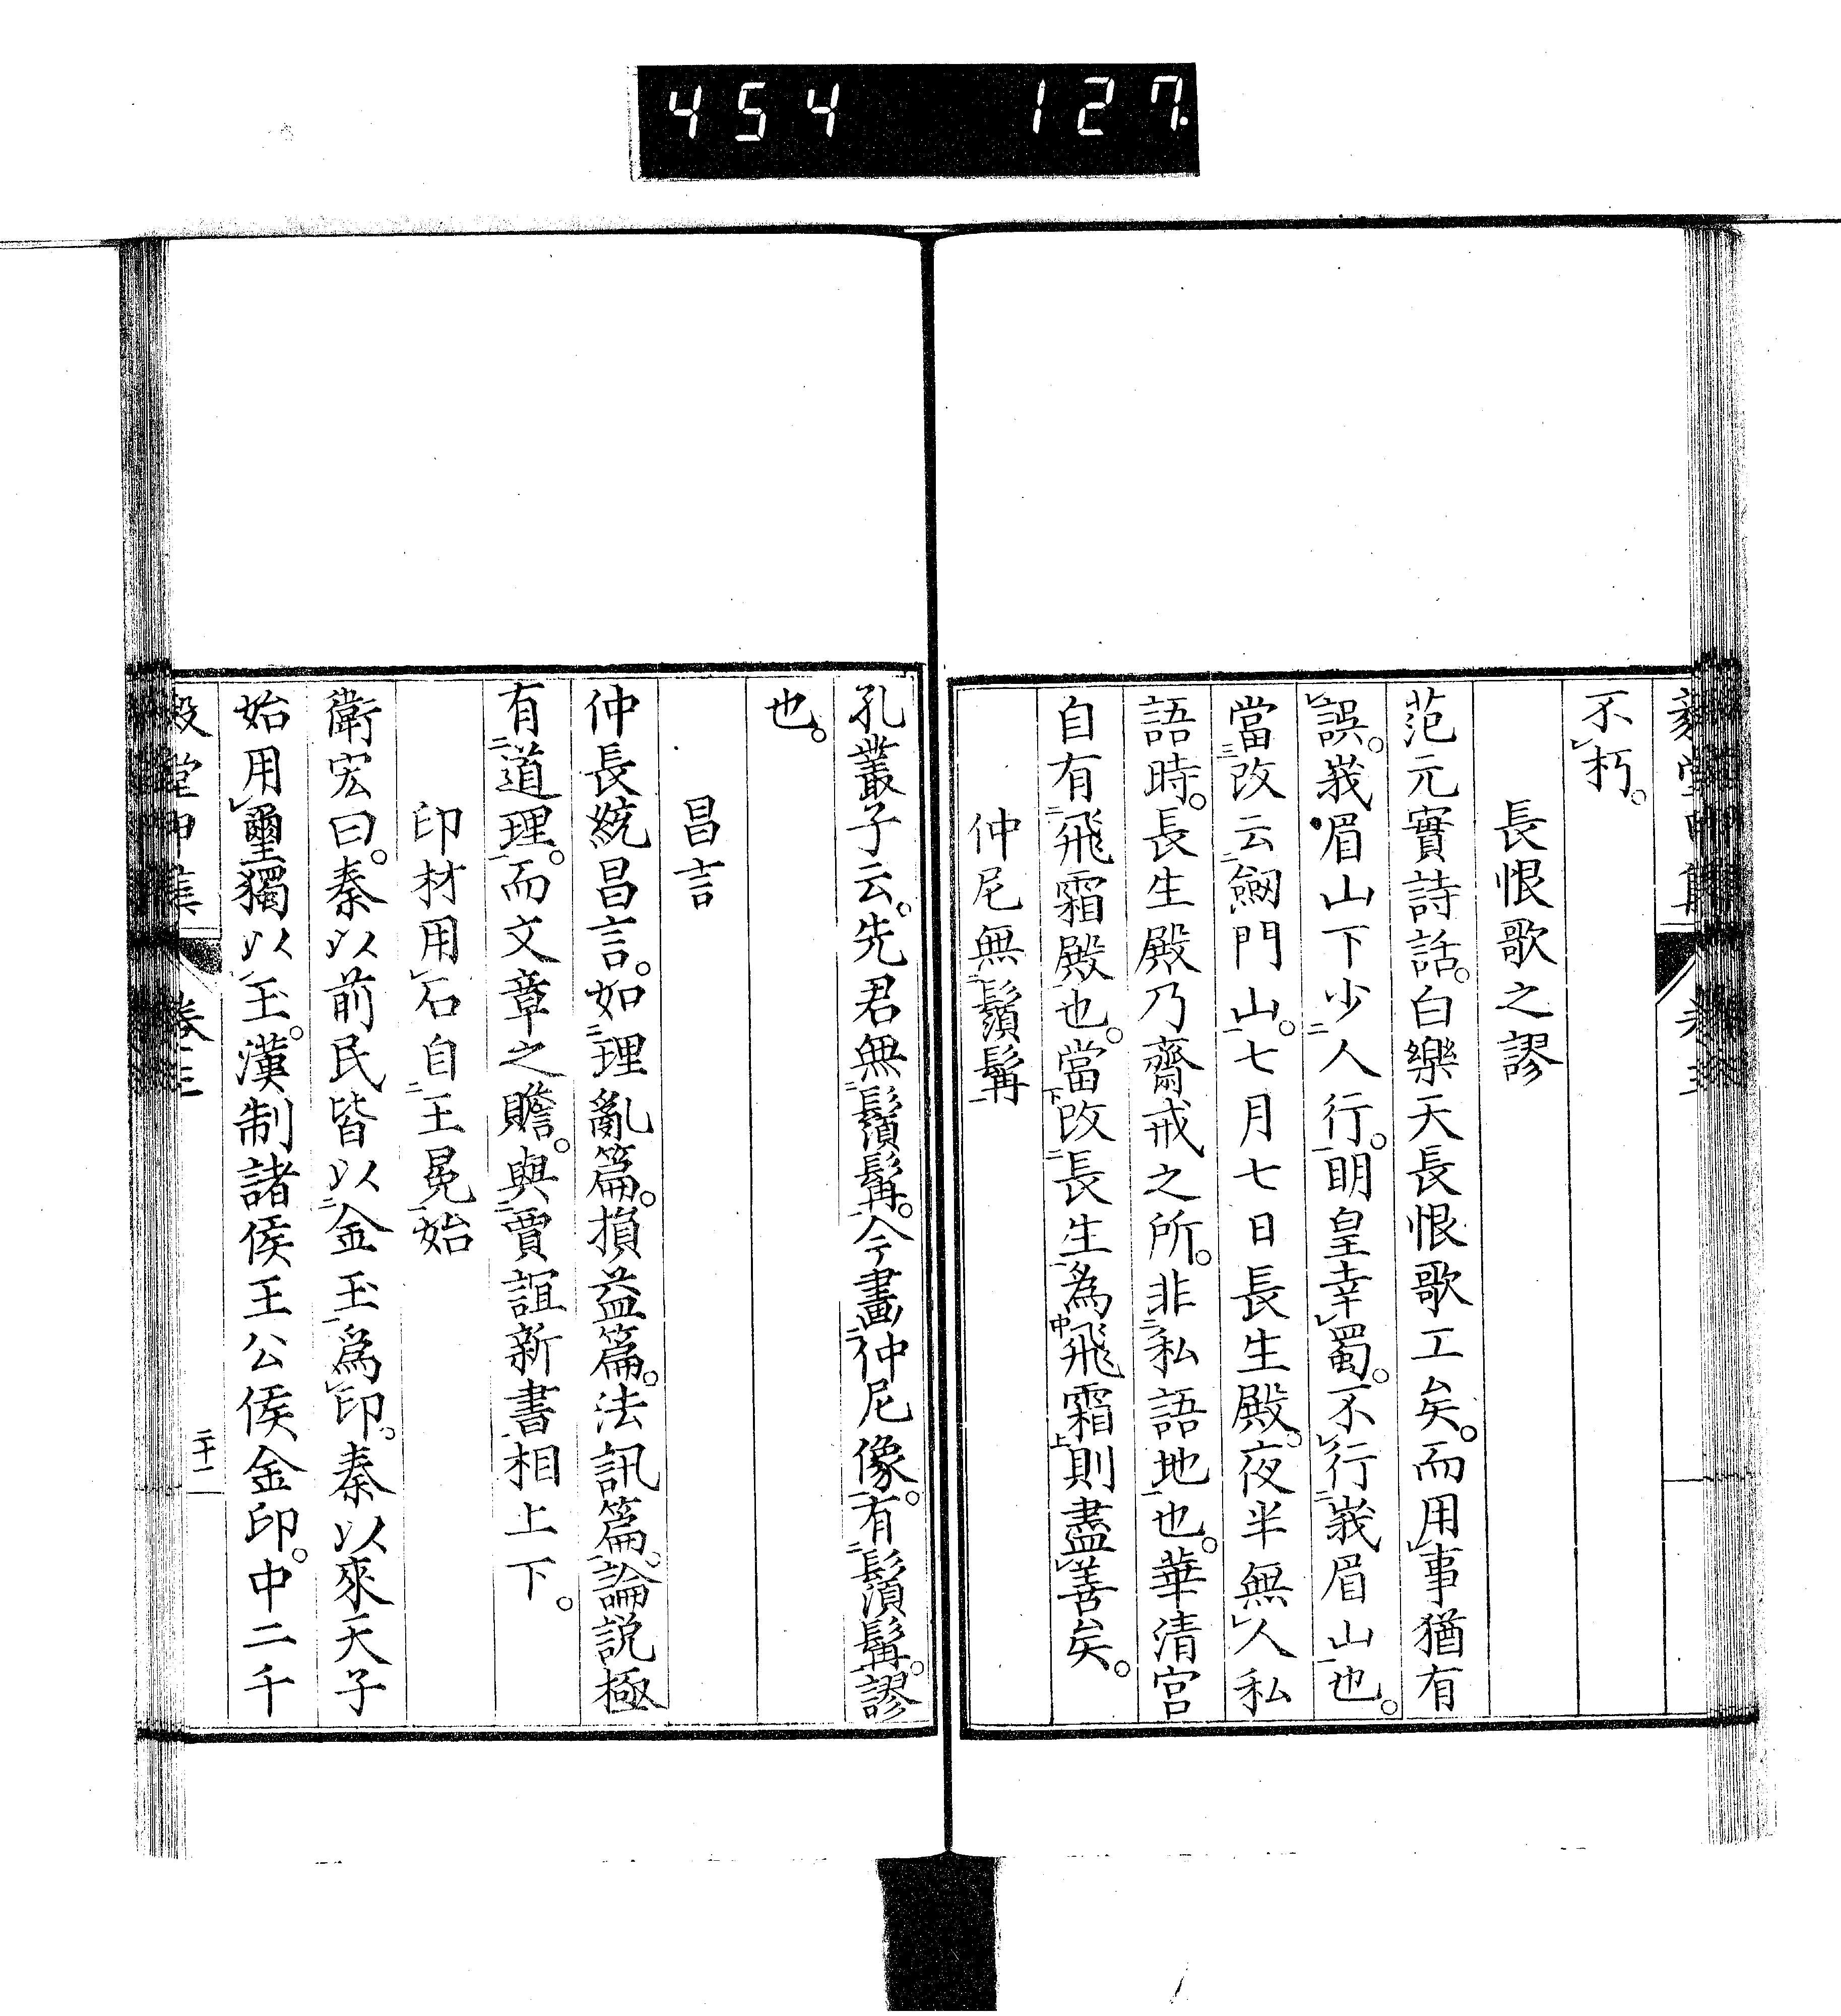 454 127.
不朽。
長恨歌之謬
范元實詩話。白樂天長恨歌工矣。而用事猶有
誤。峩眉山下少人行。明皇幸蜀。不行峩眉山也。
當改云劒門山。七月七日長生殿。夜半無人私
語時。長生殿乃齋戒之所。非私語地也。華清宮
自有飛霜殿也。當改長生為飛霜則盡善矣。
仲尼無鬚髯
孔叢子云。先君無鬚髯。今畫仲尼像。有鬚髯。謬
也。
昌言
仲長統昌言。如理亂篇。損益篇。法訊篇。論説極
有道理。而文章之贍。與賈誼新書相上下。
印材用石自王冕始
衞宏曰。秦以前民皆以金玉為印。秦以來天子
始用璽獨以玉。漢制諸侯王公侯金印。中二千
卷三
二十二